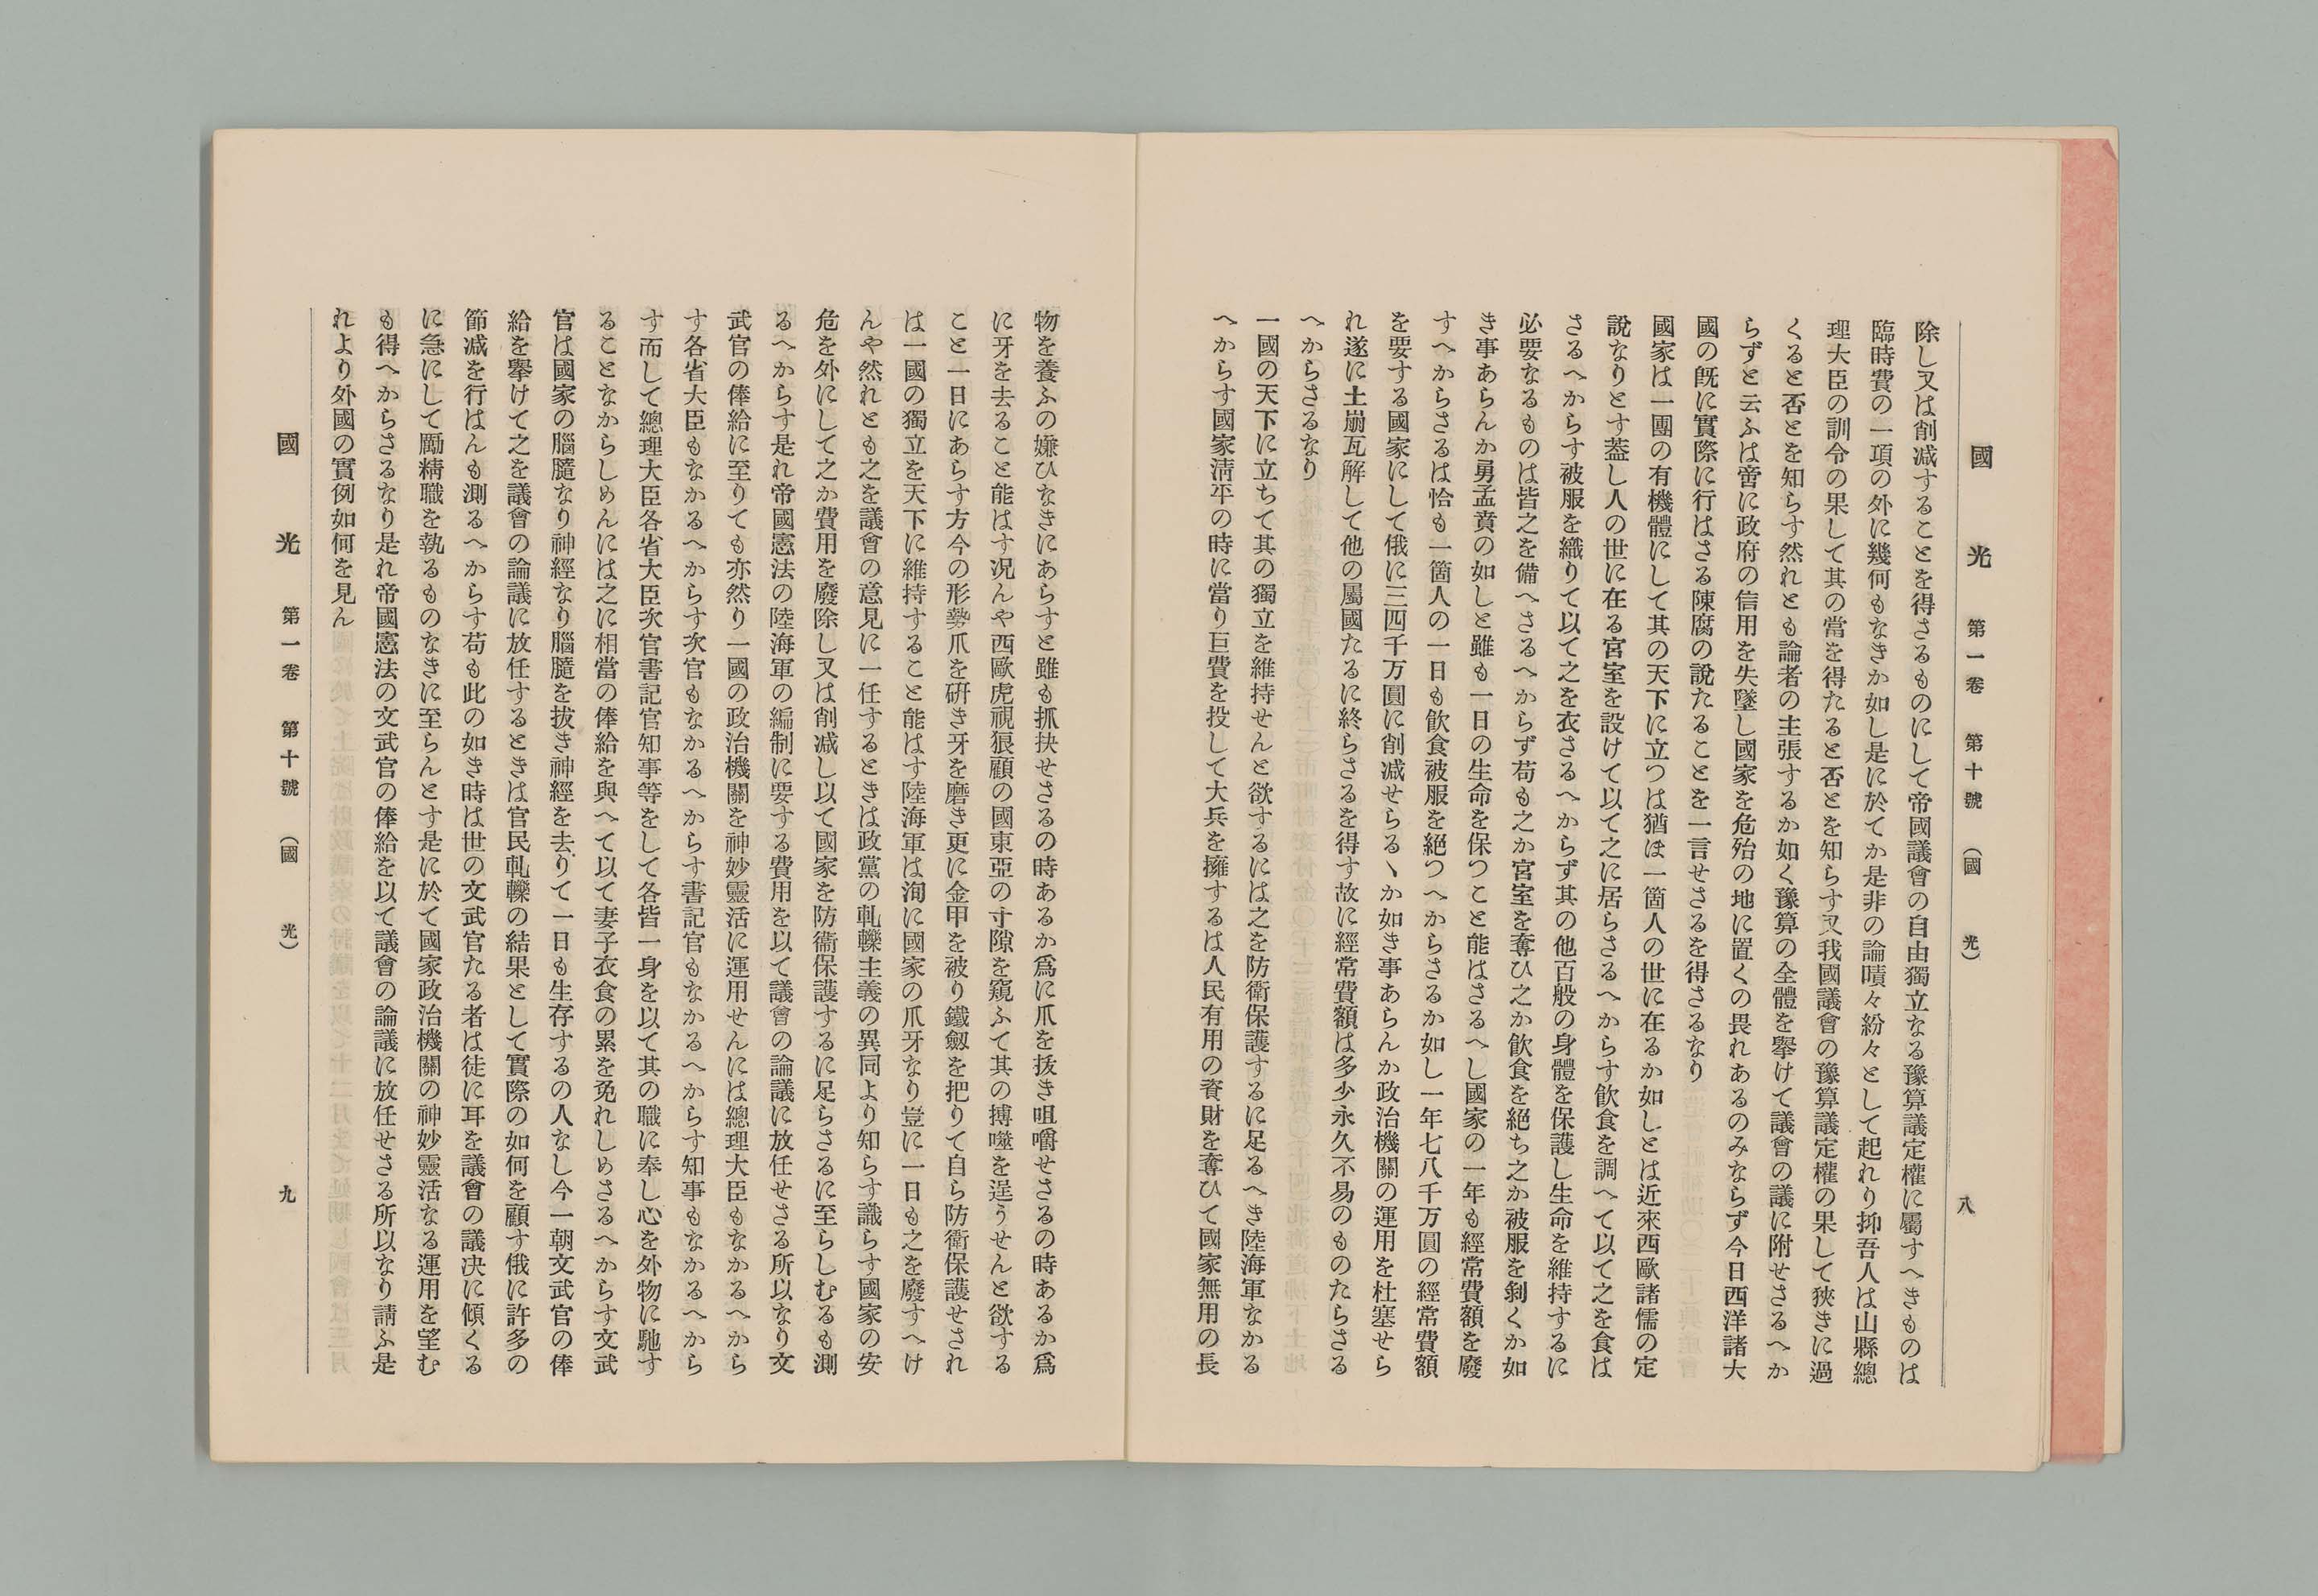 國光 第一卷 第十號 (國光) 八
除し又は削減することを得さるものにして帝國議會の自由獨立なる豫算議定權に屬すへきものは
臨時費の一項の外に幾何もなきか如し是に於てか是非の論嘖々紛々として起れり抑吾人は山縣總
理大臣の訓令の果して其の當を得たると否とを知らす又我國議會の豫算議定權の果して狹きに過
くると否とを知らす然れとも論者の主張するか如く豫算の全體を擧けて議會の議に附せさるへか
らずと云ふは啻に政府の信用を失墜し國家を危殆の地に置くの畏れあるのみならず今日西洋諸大
國の旣に實際に行はさる陳腐の說たることを一言せさるを得さるなり
國家は一團の有機體にして其の天下に立つは猶ほ一箇人の世に在るか如しとは近來西歐諸儒の定
說なりとす葢し人の世に在る宮室を設けて以て之に居らさるへからす飮食を調へて以て之を食は
さるへからす被服を織りて以て之を衣さるへからず其の他百般の身體を保護し生命を維持するに
必要なるものは皆之を備へさるへからず苟も之か宮室を奪ひ之か飮食を絕ち之か被服を剝くか如
き事あらんか勇孟賁の如しと雖も一日の生命を保つこと能はさるへし國家の一年も經常費額を廢
すへからさるは恰も一箇人の一日も飮食被服を絕つへからさるか如し一年七八千万圓の經常費額
を要する國家にして俄に三四千万圓に削減せらるゝか如き事あらんか政治機關の運用を杜塞せら
れ遂に土崩瓦解して他の屬國たるに終らさるを得す故に經常費額は多少永久不易のものたらさる
へからさるなり
一國の天下に立ちて其の獨立を維持せんと欲するには之を防衛保護するに足るへき陸海軍なかる
へからす國家淸平の時に當り巨費を投して大兵を擁するは人民有用の資財を奪ひて國家無用の長
物を養ふの嫌ひなきにあらすと雖も抓抉せさるの時あるか爲に爪を拔き咀嚼せさるの時あるか爲
に牙を去ること能はす况んや西歐虎視狼顧の國東亞の寸隙を窺ふて其の搏噬を逞うせんと欲する
こと一日にあらす方今の形勢爪を硏き牙を磨き更に金甲を被り鐵劔を把りて自ら防衛保護せされ
は一國の獨立を天下に維持すること能はす陸海軍は洵に國家の爪牙なり豈に一日も之を廢すへけ
んや然れとも之を議會の意見に一任するときは政黨の軋轢主義の異同より知らす識らす國家の安
危を外にして之か費用を廢除し又は削減し以て國家を防衞保護するに足らさるに至らしむるも測
るへからす是れ帝國憲法の陸海軍の編制に要する費用を以て議會の論議に放任せさる所以なり文
武官の俸給に至りても亦然り一國の政治機關を神妙靈活に運用せんには總理大臣もなかるへから
す各省大臣もなかるへからす次官もなかるへからす書記官もなかるへからす知事もなかるへから
す而して總理大臣各省大臣次官書記官知事等をして各皆一身を以て其の職に奉し心を外物に馳す
ることなからしめんには之に相當の俸給を與へて以て妻子衣食の累を免れしめさるへからす文武
官は國家の腦髓なり神經なり腦髓を拔き神經を去りて一日も生存するの人なし今一朝文武官の俸
給を擧けて之を議會の論議に放任するときは官民軋轢の結果として實際の如何を顧す俄に許多の
節減を行はんも測るへからす苟も此の如き時は世の文武官たる者は徒に耳を議會の議决に傾くる
に急にして勵精職を執るものなきに至らんとす是に於て國家政治機關の神妙靈活なる運用を望む
も得へからさるなり是れ帝國憲法の文武官の俸給を以て議會の論議に放任せさる所以なり請ふ是
れより外國の實例如何を見ん
國光 第一卷 第十號 (國光) 九